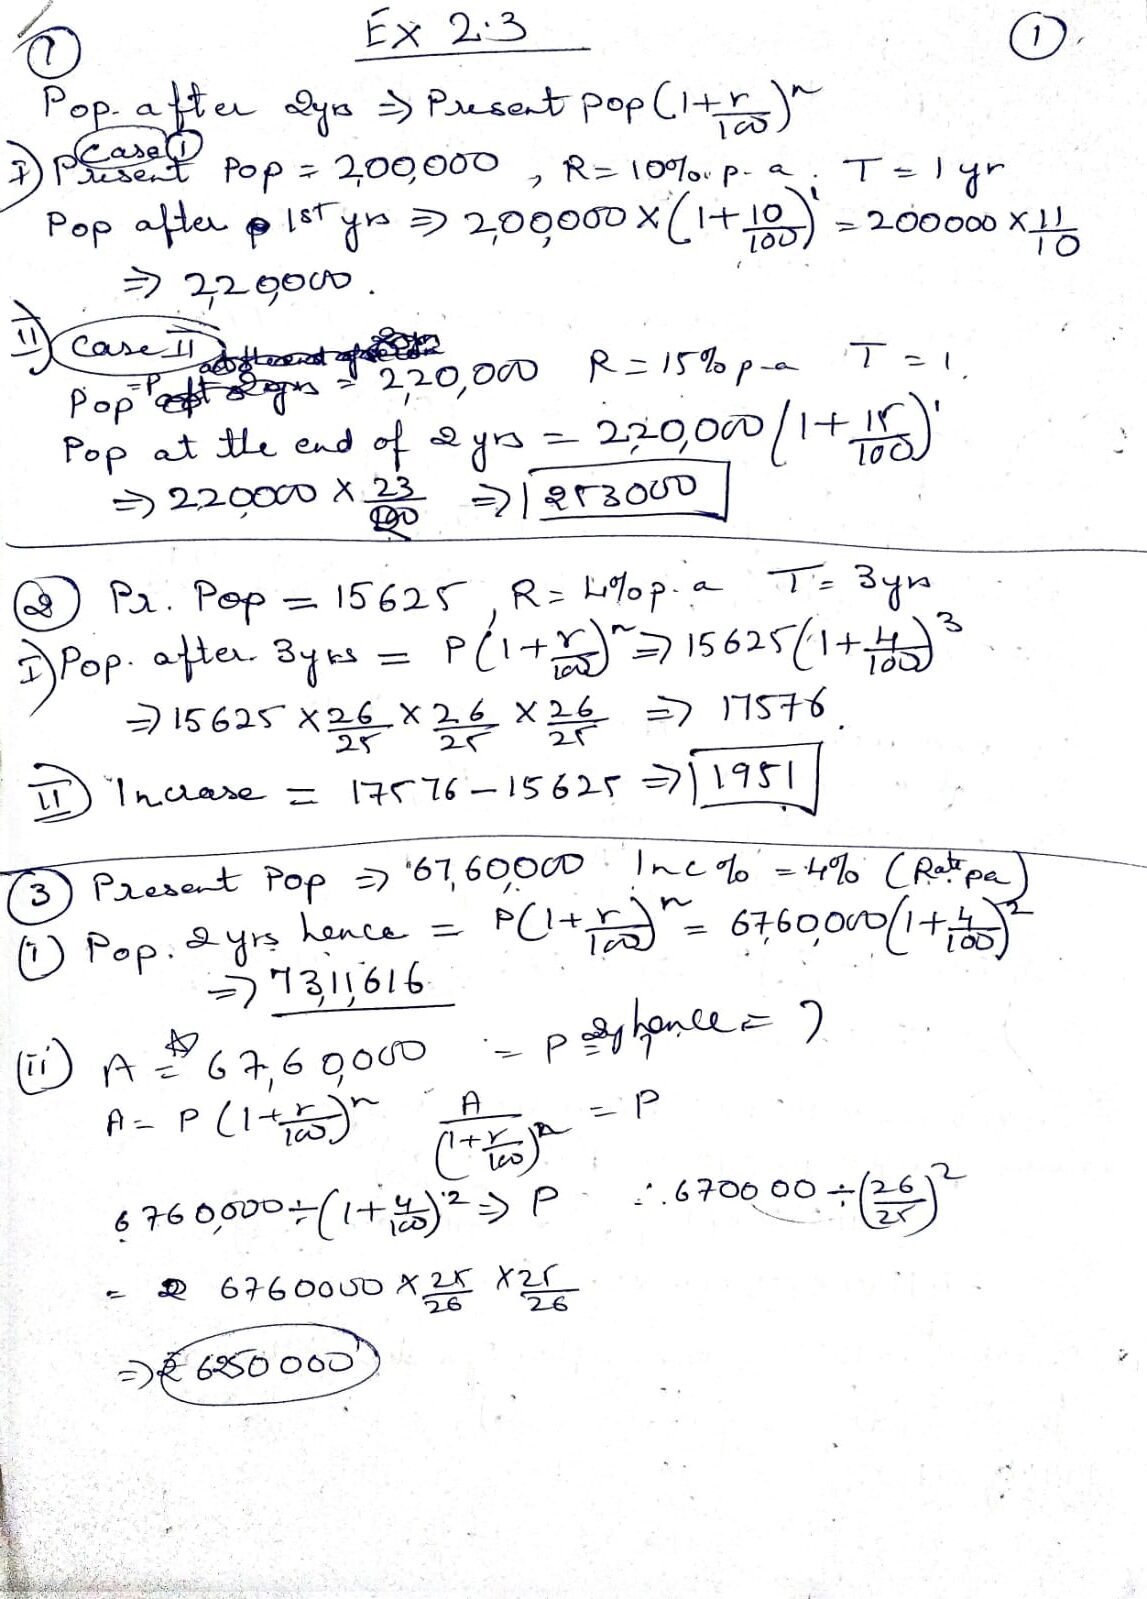 Ex 2.3
①
①
Pop. after 2yrs ⇒ Present pop (1+r/100)^n
Case I
I) Present Pop = 2,00,000 , R = 10% p.a. T = 1 yr
Pop after 1st yrs ⇒ 2,00,000 × (1+10/100)^1 = 200000 × 11/10
⇒ 2,20,000.
II) Case II
Pop = P = 2,20,000 R = 15% p-a T = 1.
Pop at the end of 2 yrs = 2,20,000 (1+15/100)^1
⇒ 220000 × 23/20 ⇒ 253000
② Pr. Pop = 15625, R = 4% p.a T = 3yrs
I) Pop. after 3yrs = P(1+r/100)^n ⇒ 15625(1+4/100)^3
⇒ 15625 × 26/25 × 26/25 × 26/25 ⇒ 17576.
II) Increase = 17576 – 15625 ⇒ 1951
③ Present Pop ⇒ 67,60,000 Inc % = 4% (Rate pa)
(i) Pop. 2 yrs hence = P(1+r/100)^n = 67,60,000(1+4/100)^2
⇒ 73,11,616
(ii) A = 67,60,000 = P 2y hence = ?
A = P (1+r/100)^n A/(1+r/100)^n = P
6760,000 ÷ (1+4/100)^2 ⇒ P ∴ 670000 ÷ (26/25)^2
= 6760000 × 25/26 × 25/26
⇒ ₹ 6250000